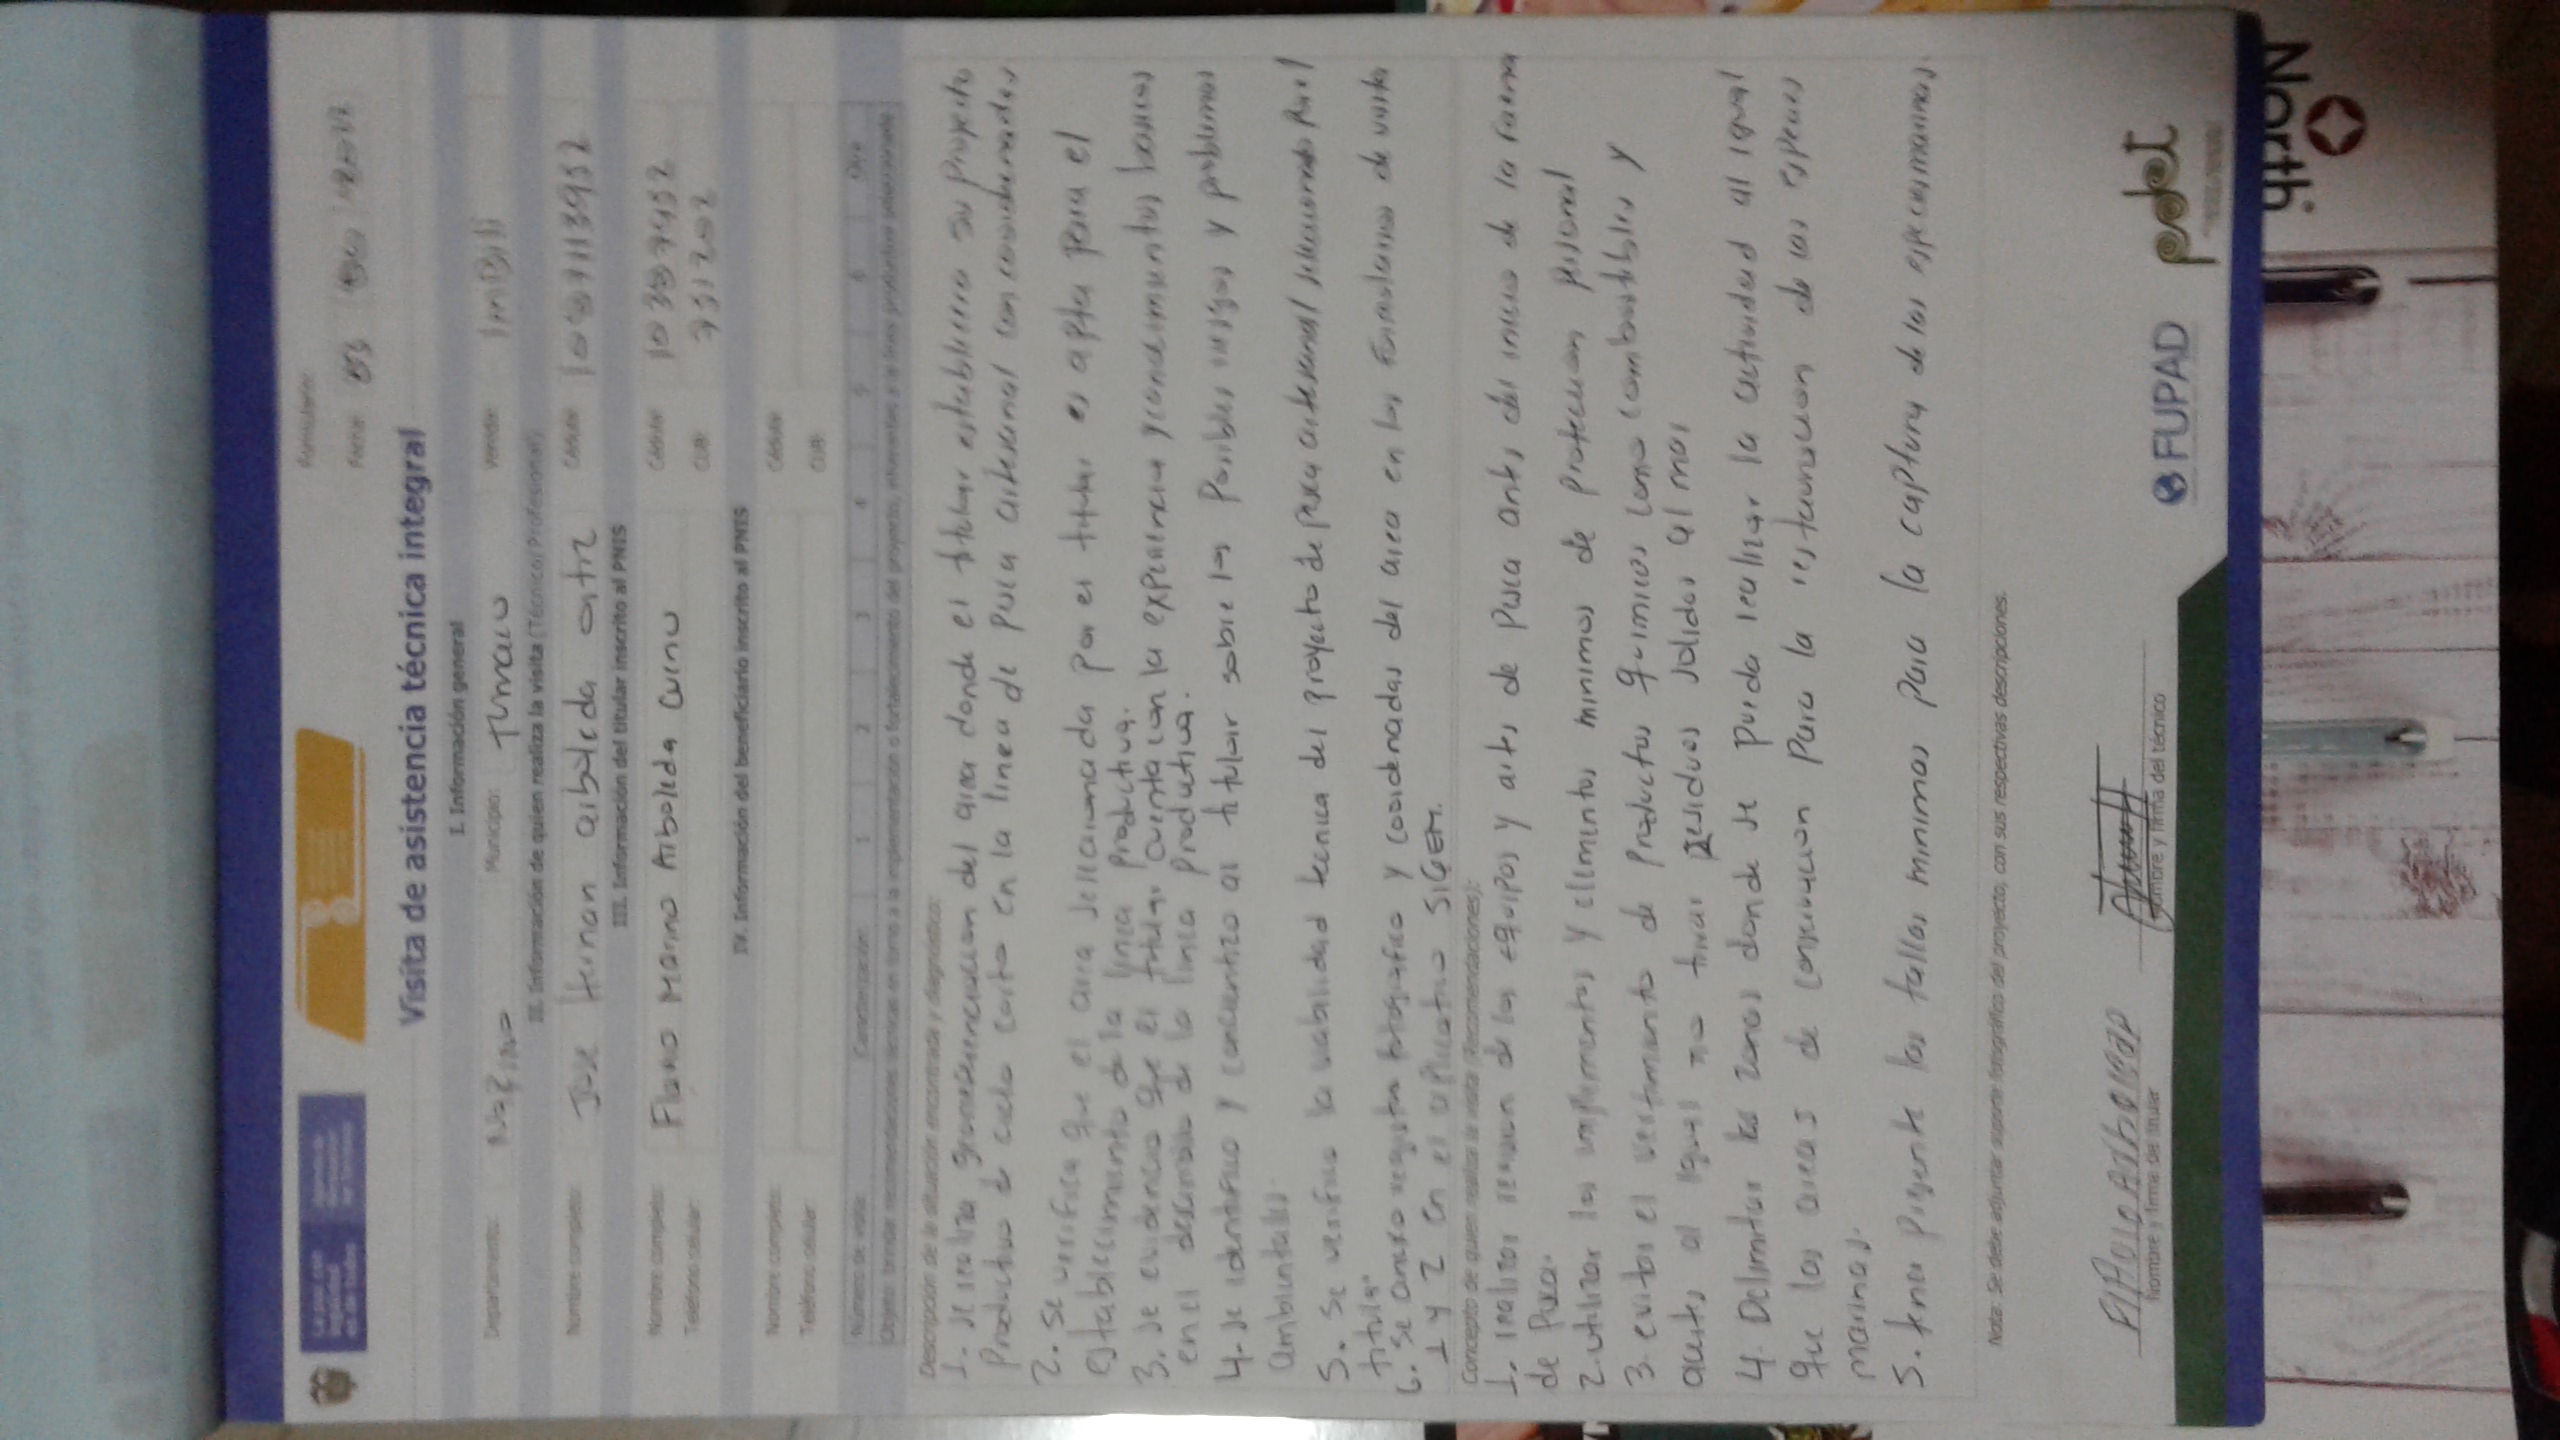 Formulario:
Fecha: 03
Visita de asistencia técnica integral
I. Información general
Departamento: Nariño Municipio: Tumaco Vereda: Imbili
II. Información de quien realiza la visita (Técnico/ Profesional)
Nombre completo: Jose Hernan arboleda ortiz Cédula: 1087113952
III. Información del titular inscrito al PNIS
Nombre completo: Flavio Marino Arboleda Cédula:
Teléfono celular: CUB: 751202
IV. Información del beneficiario inscrito al PNIS
Nombre completo: Cédula:
Teléfono celular: CUB:
Número de visita: Caracterización 1 2 3 4 5 6 Otra
Descripción de la situación encontrada y diagnóstico:
1. se realiza georeferenciacion del area donde el titular establecera su Proyecto
Productivo de ciclo corto en la linea de Pesca artesanal con coordenadas.
2. Se verifica que el area seleccionada por el titular es apta para el
establecimiento de la linea productiva.
3. Se evidencio que el titular cuenta con la experiencia y conocimientos basicos
en el desarrollo de la linea productiva.
4. se identifico y concientizo al titular sobre los Posibles riesgos y problemas
ambientales.
5. Se verifico la viabilidad tecnica del proyecto de pesca artesanal seleccionado por el
titular
6. Se anexo registro fotografico y coordenadas del area en los formularios de visita
1 y 2 en el aplicativo SIGEM.
Concepto de quien realiza la visita (Recomendaciones):
1. realizar revision de los equipos y arts de Pesca antes del inicio de la faena
de Pesca.
2. utilizar los implementos y elementos minimos de Proteccion personal
3. evitar el vertimiento de Productos quimicos como combustibles y
aceites al igual no tirar residuos solidos al mar
4. Delimitar las zonas donde se pueda realizar la actividad al igual
que las areas de conservacion Para la restauracion de las especies
marinas.
5. tener Presente las tallas minimas para la captura de las especies marinas.
Nota: Se debe adjuntar soporte fotográfico del proyecto, con sus respectivas descripciones.
Nombre y firma del titular
Nombre y firma del técnico
FUPAD
pdet
North